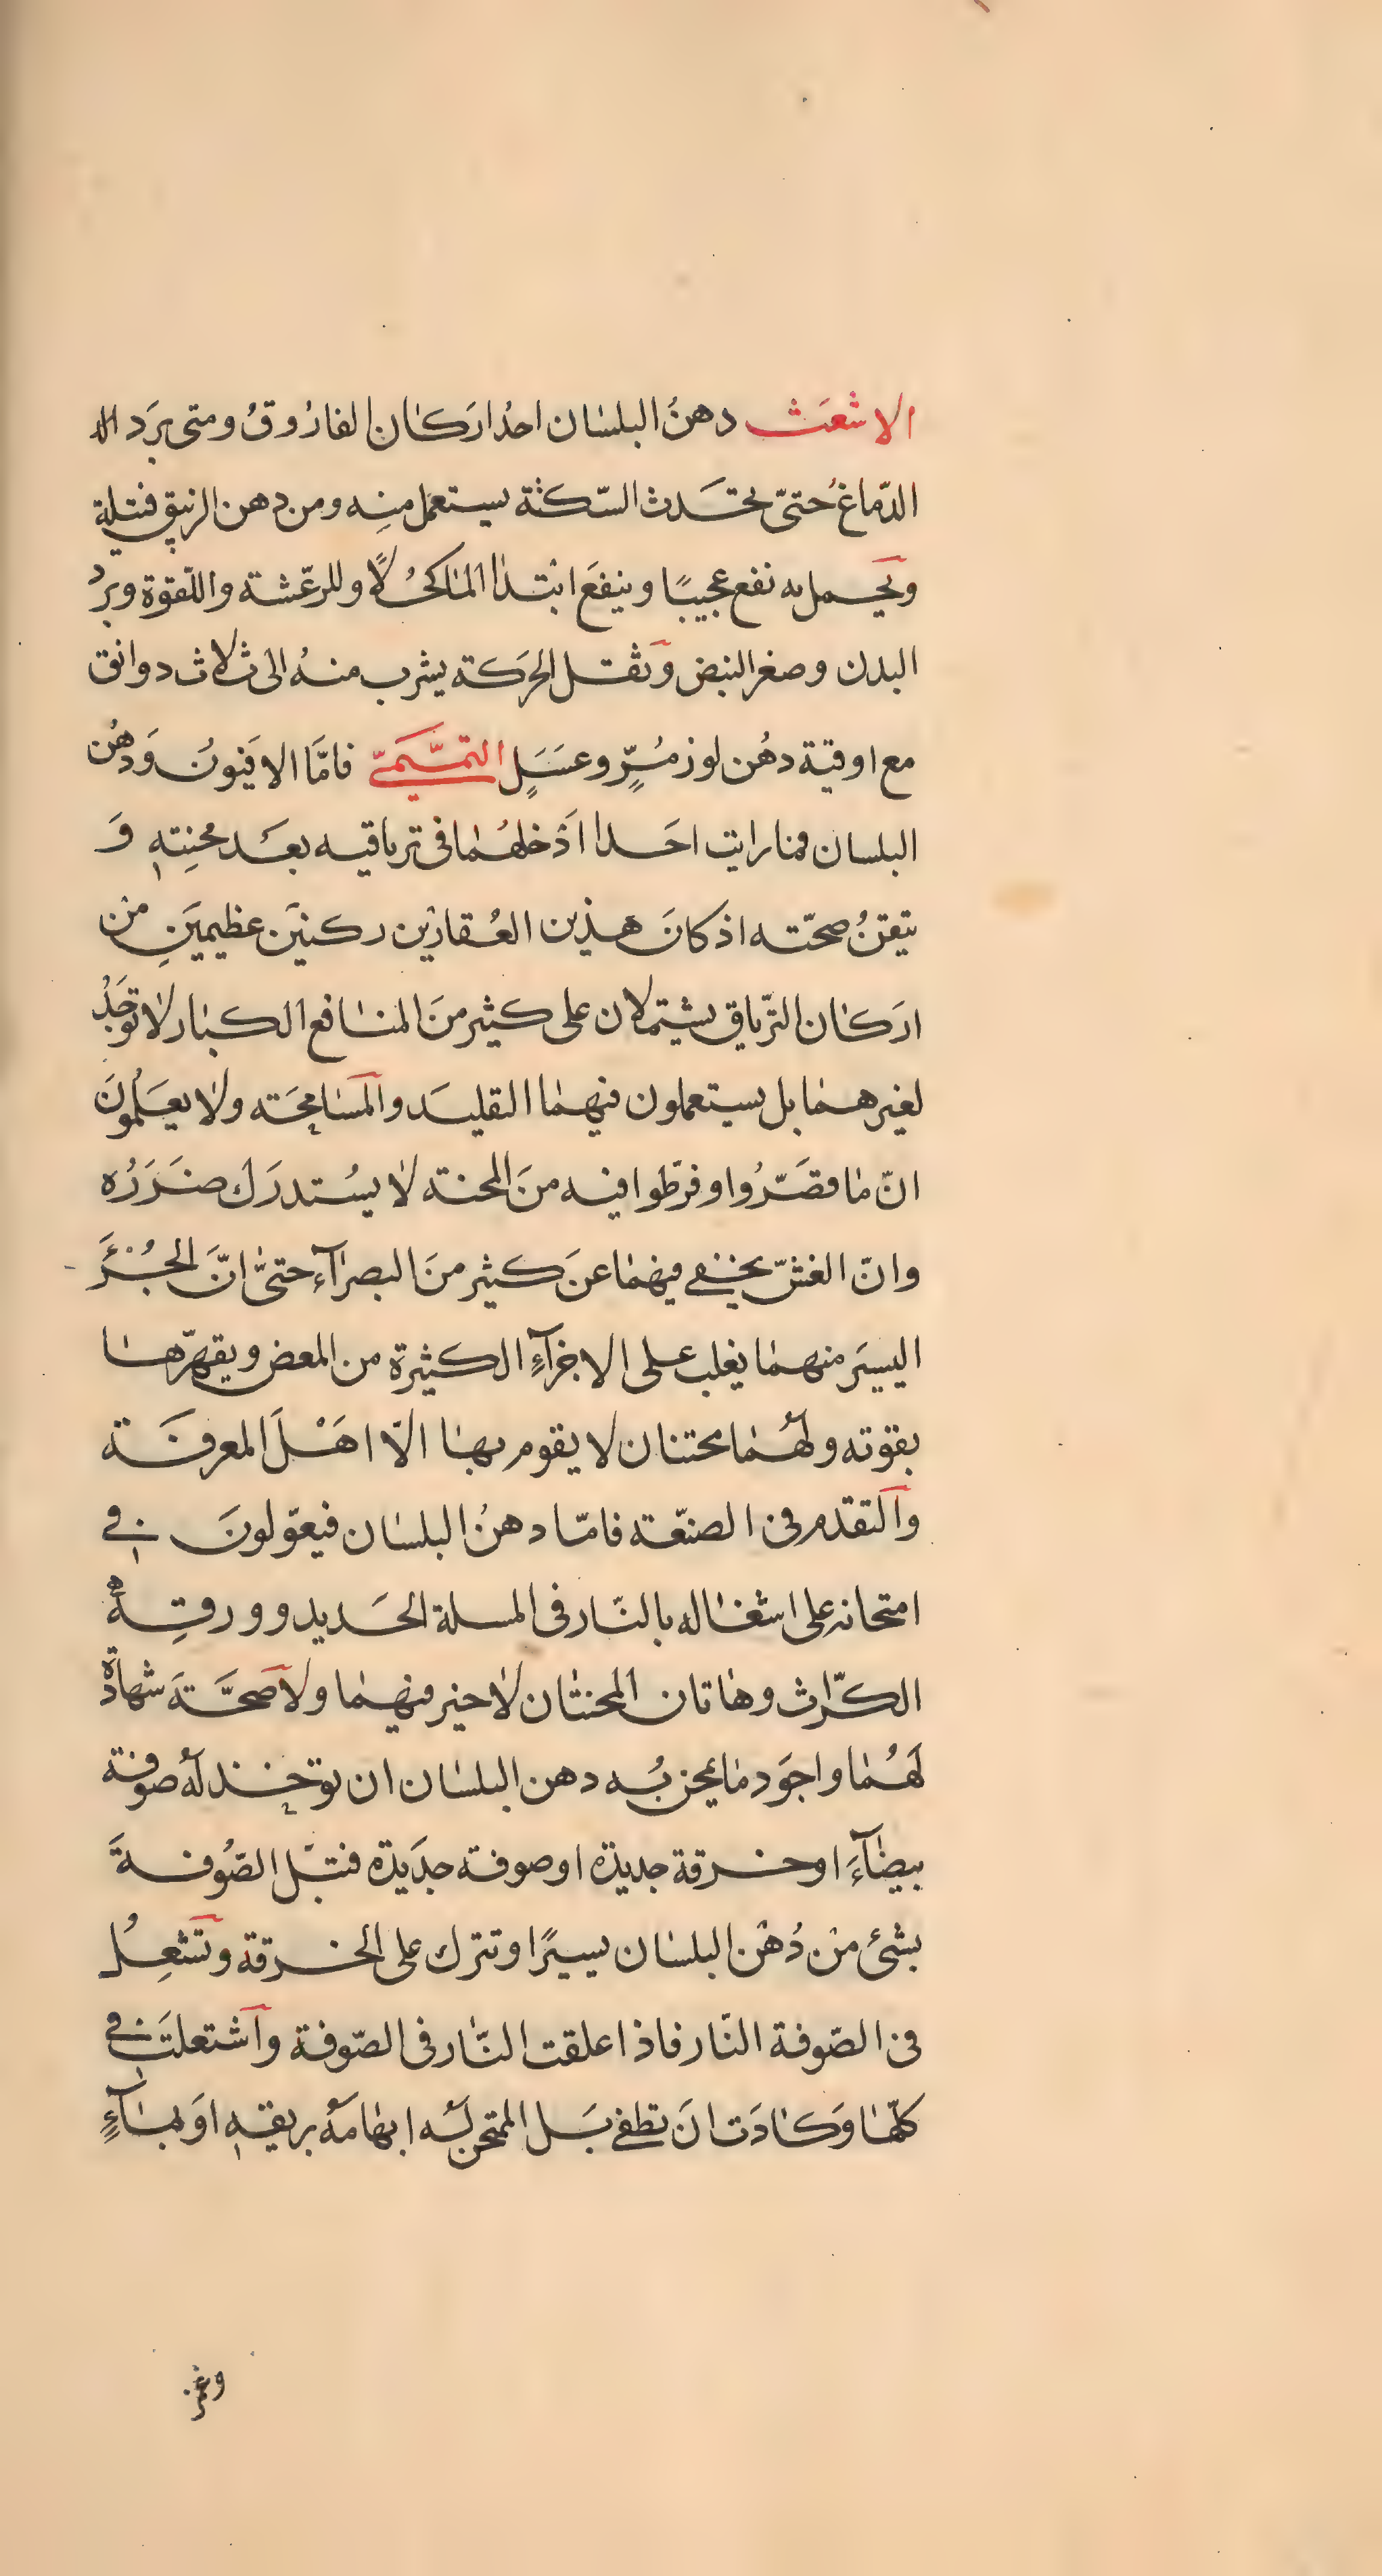 الاشعَث دهنُ البلسان احدُ اركان الفارُوقُ ومتى برَد الد
الدّماغُ حتىّ يحَدث السّكتة يستعمل منِه ومن دهن الزنبق فتيلة
ويَحمل به نفع عجيبًا وينفعَ ابتدا الما كحُلاً وللرعّشة واللّقوة وبردُ
البدن وصغر النبض وَثقل الحرَكة يشرب منهُ الى ثلاث دوانق
مع اوقية دهُن لوز مُرٍّ وعسَلٍ التمَّيَميّ فامَّا الافيَونُ وَدهُن
البلسان فما رايت احَدا اَدْخلهُما فى ترياقيه بعَد محنِتهِ وَ
تيقنُ صحّته اذ كانَ هذين العُقارَيْن ركنيَن عظيميَنِ منْ
اركان التّرياق يشتملان على كثير منَ المنافع الكبار لا توُجَدْ
لغيرهما بل يستعملون فيهما التقليَد والَمسامحَته ولا يعَلمُونَ
انّ ما قصَّرُوا وفرّطوا فيه منَ المحنته لا يسُتدرَك ضَرَرُه
وانّ الغشّ يخفى فيهما عنَ كثير منَ البصرآء حتىّ انَّ الجُزْءَ
اليسيَر منهما يغلب على الاجزآءٍ الكثيرة من المعض ويقهرّها
بقوّته ولهُما محنتان لا يقوم بهما الّا اهَْلَ المعرفَة
واَلتقدم فى الصنعّة فامّا دهنُ البلسان فيعوّلونَ فى
امتحانه على اشغاله بالنَّار فى المسلة الحَديد وورقِة
الكرّاث وهاتان المحنتان لا خير فيهما ولا صَحَّتة شهادة
لهَُما واجوَد ما يمحن بُه دهن البلسان ان توخذ لهُ صوفة
بيضآءَ او خرقة جديدة او صوفة جدَيدة فتبّل الصّوُفةَ
بشئ منْ دُهْن البلسان يسيرًا وتترك على الخرقة وتَشعِلُ
فى الصّوفة النّار فاذا علقت النّار فى الصّوفة واَشتعلتَ فى
كلّها وَكادَت انَ تطفى بَل الممتحن لهَ ابهامهُ بريقهِ اوَ بمآءٍ
وغمز